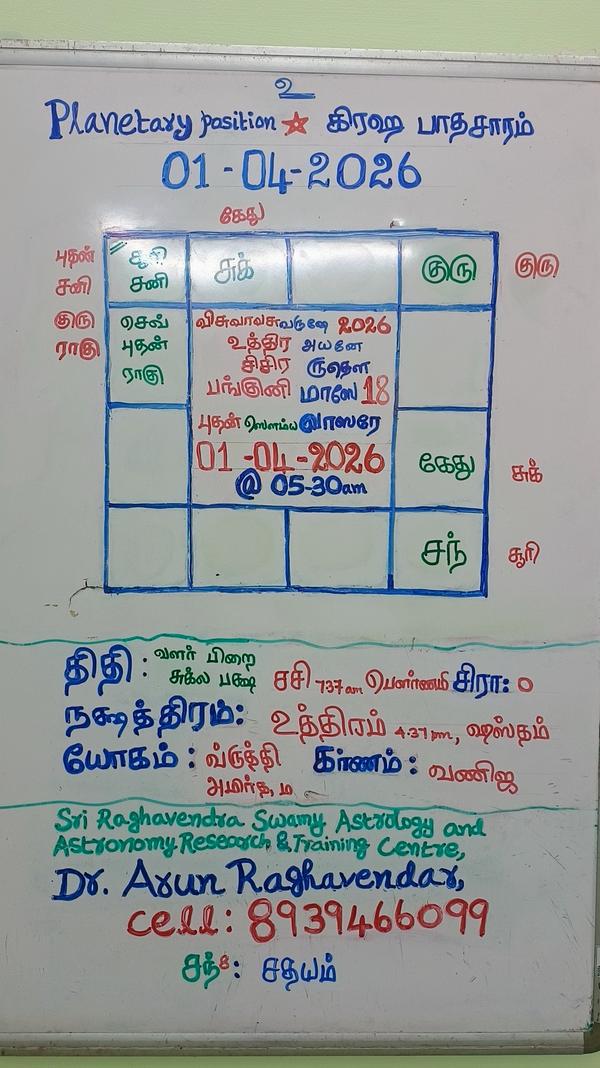 உ
Planetary position ☆ கிரஹ பாதசாரம்
01-04-2026
கேது
புதன்
சனி
குரு
ராகு
சூரி
சனி
சுக்
குரு
குரு
செவ்
புதன்
ராகு
விசுவாவசுவருஷே 2026
உத்திர அயனே
சிசிர ருதௌ
பங்குனி மாஸே 18
புதன் ஸௌம்ய வாஸரே
01-04-2026
@ 05-30am
கேது
சுக்
சந்
சூரி
திதி : வளர் பிறை
சுக்ல பக்ஷ
சசி 7.37am பௌர்ணமி சிரா: 0
நக்ஷத்திரம்: உத்திரம் 4.37pm, ஹஸ்தம்
யோகம் : வ்ருத்தி கரணம் : வணிஜ
அமிர்த, ம
Sri Raghavendra Swamy Astrology and
Astronomy Research & Training Centre,
Dr. Arun Raghavendar,
cell: 8939466099
சந்8: சதயம்